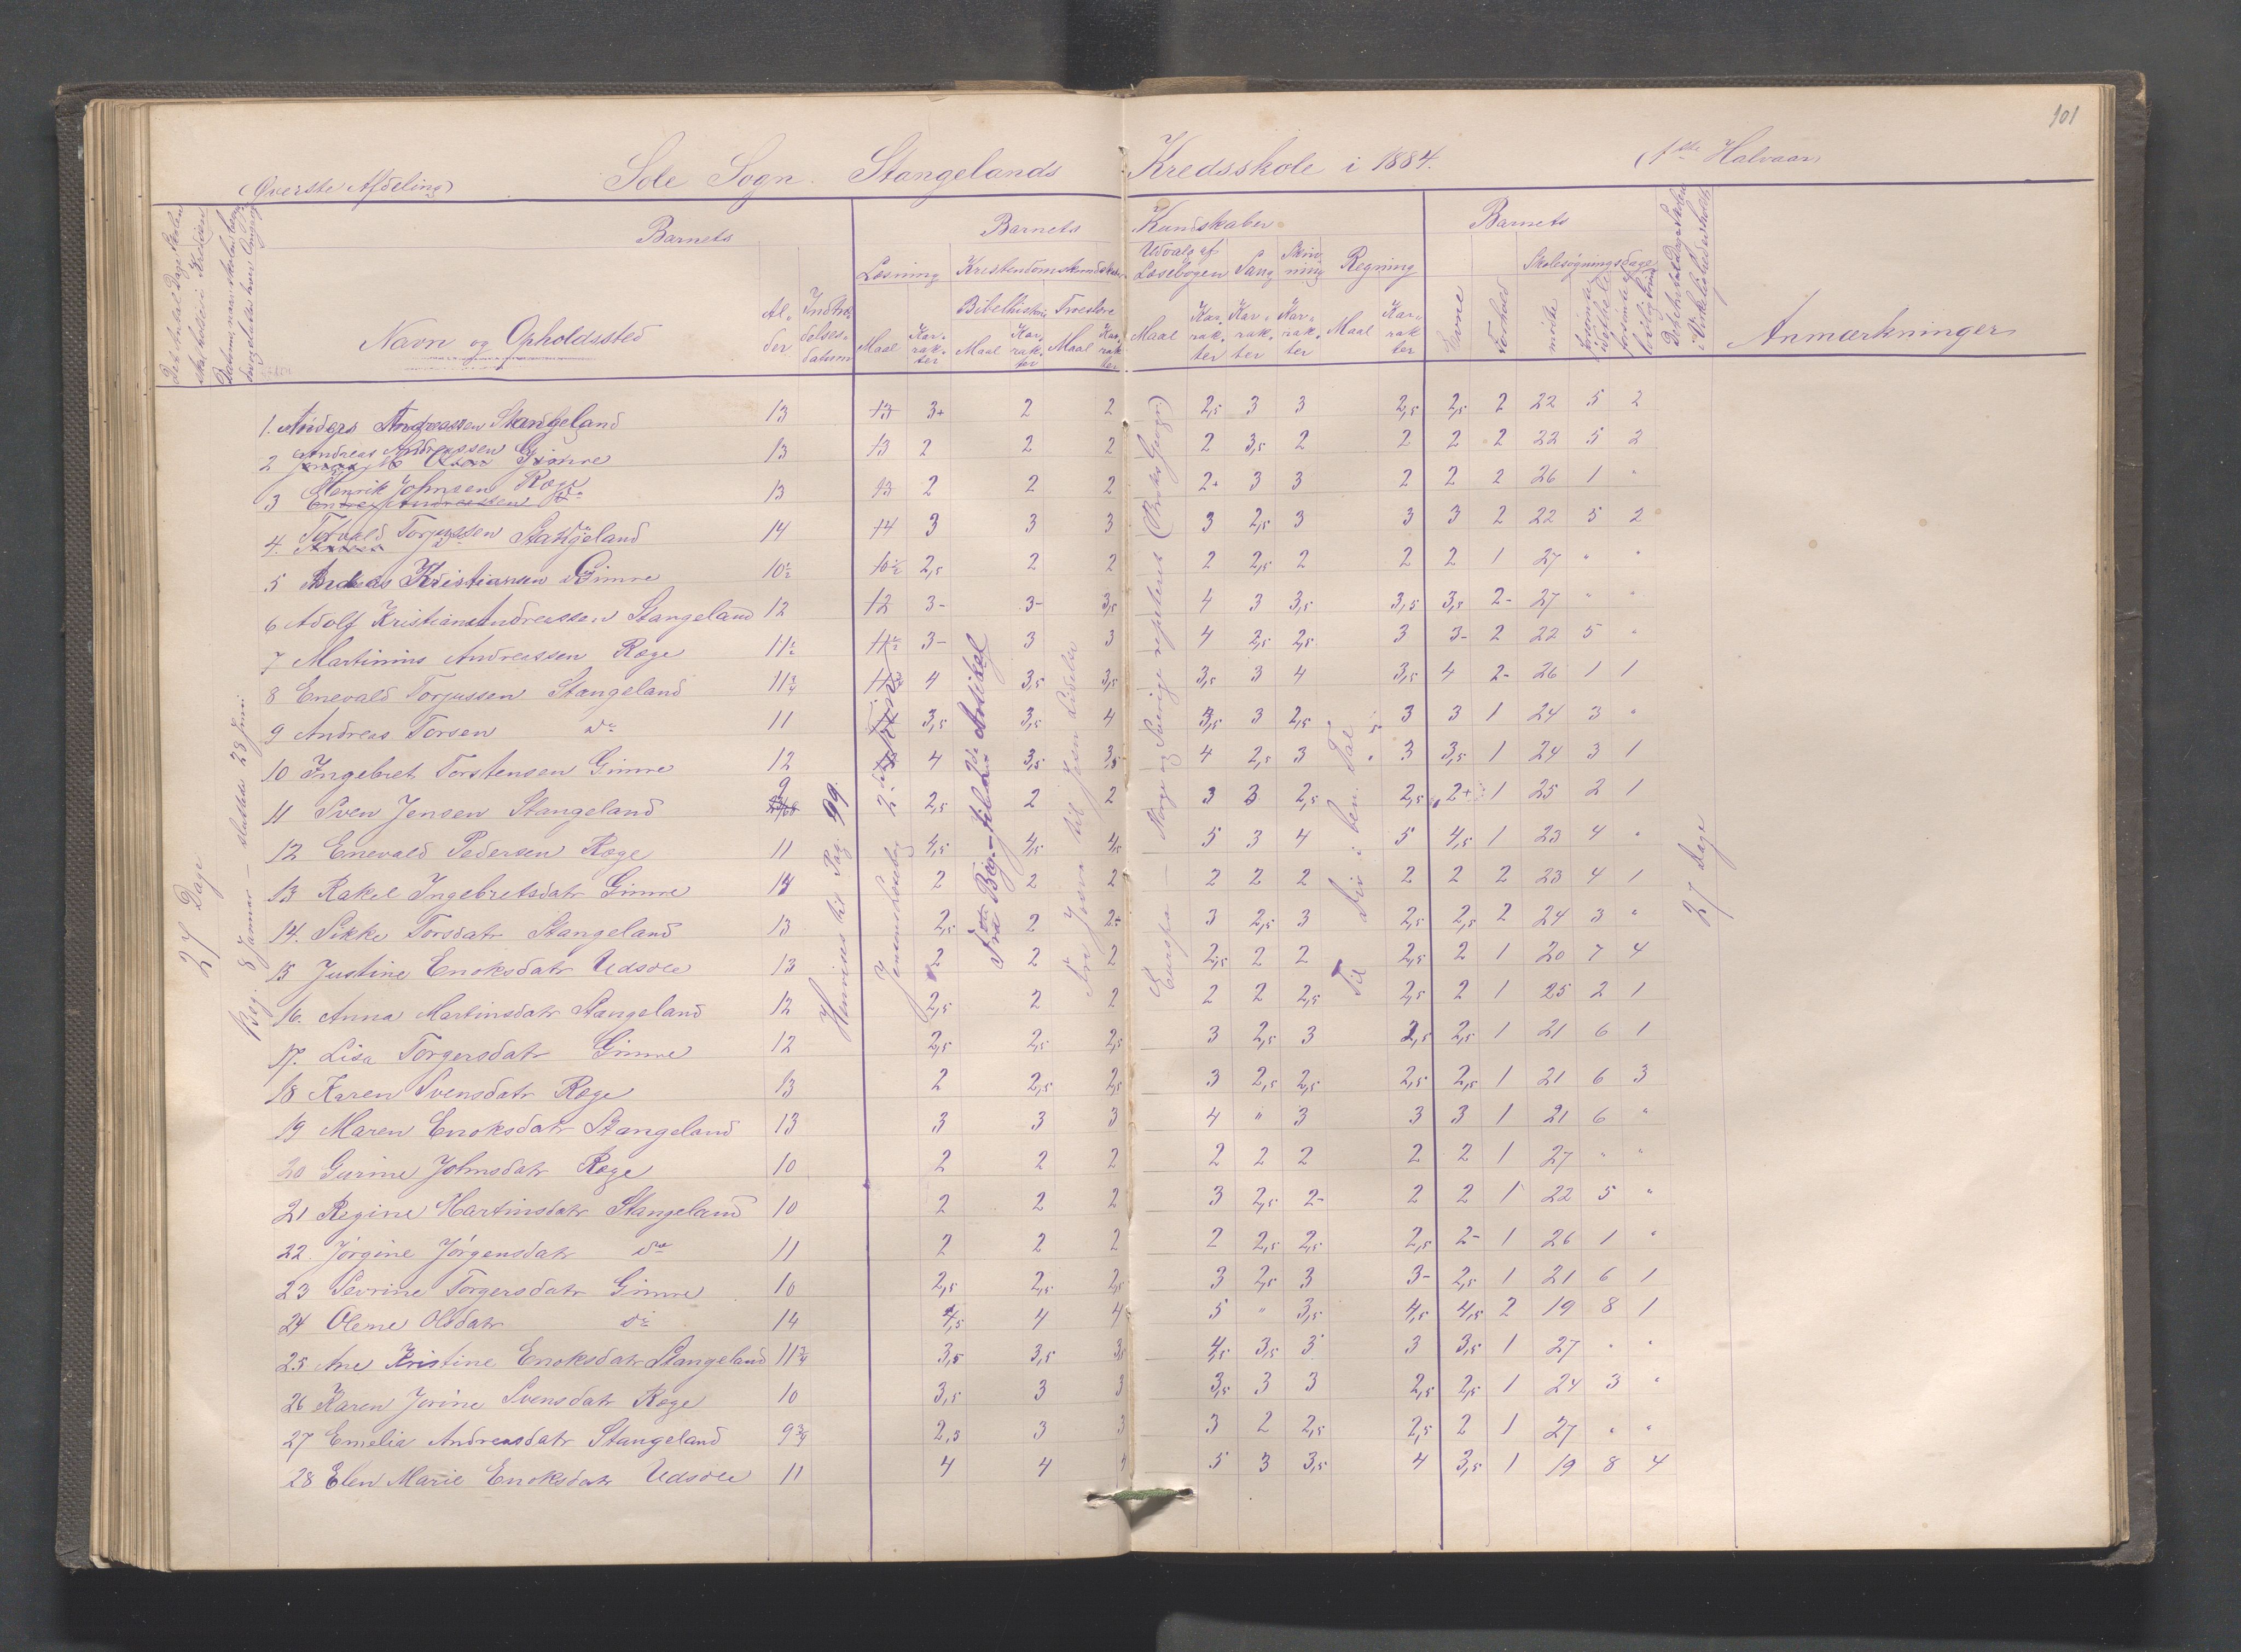 101
(Øverste Afdeling) Sole Sogn. Stangelands Kredsskole i 1884. (1ste Halvaar)
Barnets Barnets Kundskaber Barnets
Det Antal Dage Skolen skal holdes i Kredsen
Datum, naar Skolen begynder og sluttes hver Omgang
Navn og Opholdssted
Alder
Indtrædelsesdatum
Læsning Kristendomskundskab Udvalg af Læsebogen Sang Skrivning Regning
Bibelhistorie Troeslære
Maal Karakter Maal Karakter Maal Karakter Maal Karakter Karakter Karakter Maal Karakter
Evne Forhold Skolesøgningsdage
mødte forsømte i det Hele forsømte af lovlig Grund
Det Antal Dage Skolen i Virkeligheden er holdt
Anmærkninger
27 Dage
Beg. 8 Januar – sluttede 28 Juni
Henvises til Pag. 99.
Jensens Læsebog
Fra Beg. til 2den Artikel
Fra Josva til Jesu Lidelse
Europa – Norge og Sverige repeteret (Brokes Geogr.)
Til Div. i ben. Tal
27 Dage
1. Anders Andreassen Stangeland 13 13 3+ 2 2 2,5 3 3 2,5 2,5 2 22 5 2
2 Andreas Andreassen Gimre 13 13 2 2 2 2 3,5 2 2 2 2 22 5 2
3 Henrik Johnsen Røge 13 13 2 2 2 2+ 3 3 2 2 2 26 1 "
4. Torvald Torjussen Stangeland 14 14 3 3 3 3 2,5 3 3 3 2 22 5 2
5 Andreas Kristiansen Gimre 10½ 10½ 2,5 2 2 2 2,5 2 2 2 1 27 " "
6 Adolf Kristian Andreassen Stangeland 12 12 3- 3- 3,5 4 3 3,5 3,5 3,5 2- 27 " "
7 Martinius Andreassen Røge 11½ 11½ 3- 3 3 4 2,5 2,5 3 3- 2 22 5 "
8 Enevald Torjussen Stangeland 11¾ 4 3,5 3,5 3,5 3 4 3,5 4 2- 26 1 1
9 Andreas Torsen do 11 3,5 3,5 4 3,5 3 2,5 3 3 1 24 3 "
10 Ingebret Torstensen Gimre 12 4 3,5 3,5 4 2,5 3 3 3,5 1 24 3 1
11 Sven Jensen Stangeland 9 2,5 2 2 3 3 2,5 2,5 2+ 1 25 2 1
12 Enevald Pedersen Røge 11 4,5 4,5 4,5 5 3 4 5 4,5 1 23 4 "
13 Rakel Ingebretsdatr Gimre 14 2 2 2 2 2 2 2 2 2 23 4 1
14. Sikke Torsdatr Stangeland 13 2,5 2 2- 3 2,5 3 2,5 2,5 2 24 3 "
15 Justine Enoksdatr Udsole 13 2 2 2 2,5 2 2 2,5 2 1 20 7 4
16. Anna Martinsdatr Stangeland 12 2,5 2 2 2 2 2,5 2,5 2 1 25 2 1
17. Lisa Torgersdatr Gimre 12 2,5 2,5 2,5 3 2,5 3 2,5 2,5 1 21 6 1
18 Karen Svensdatr Røge 13 2 2,5 2,5 3 2,5 2,5 2,5 2,5 1 21 6 3
19 Maren Enoksdatr Stangeland 13 3 3 3 4 " 3 3 3 1 21 6 "
20 Gurine Johnsdatr Røge 10 2 2 2 2 2 2 2 2 1 27 " "
21 Regine Martinsdatr Stangeland 10 2 2 2 3 2,5 2- 2 2 1 22 5 "
22. Jørgine Jørgensdatr do 11 2 2 2 2 2,5 2,5 2,5 2- 1 26 1 "
23 Sevrine Torgersdatr Gimre 10 2,5 2,5 2,5 3 2,5 3 3- 2,5 1 21 6 1
24 Olene Olsdatr do 14 4,5 4 4 5 " 3,5 4,5 4,5 2 19 8 1
25 Ane Kristine Enoksdatr Stangeland 11¾ 3,5 3,5 3,5 4,5 3,5 3 3 3,5 1 27 " "
26 Karen Jorine Svensdatr Røge 10 3,5 3 3 3,5 3 3 2,5 2,5 1 24 3 "
27 Emelia Andreasdatr Stangeland 9¾ 2,5 3 3 3 2 2,5 2,5 2 1 27 " "
28 Elen Marie Enoksdatr Udsole 11 4 4 4 5 3 3,5 4 3,5 1 19 8 4